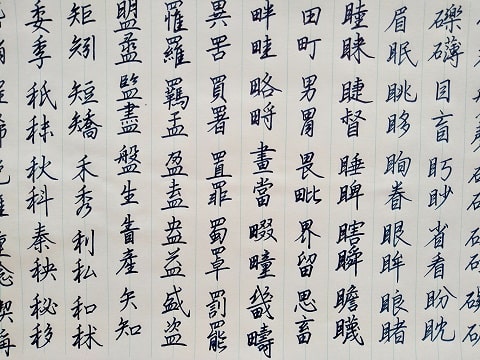 礫礴目盲眄眇省看盼眈
眉眠眺眵眴眷眼眸睹
睦睞睫督睡睥瞎瞬瞻
田町男胃畏毗界留思畜
畔畦略畤畫當畷疃畿疇
異罟買署置罪蜀罩罰罷
罹羅羈盂盈盍盎益盛盜
盟盞監盡盤生眚產矢知
矩矧短矯禾秀利私和秣
委季秖秋科秦秧秘移